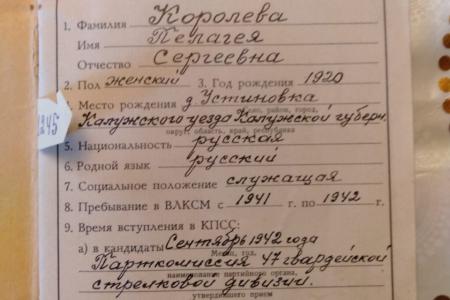 1. Фамилия Королева
Имя Пелагея
Отчество Сергеевна
2. Пол женский 3. Год рождения 1920
Место рождения д Устиновка
село, район, город,
Калужского уезда Калужской губерн.
округ, область, край, республика
245
5. Национальность русская
6. Родной язык русский
7. Социальное положение служащая
8. Пребывание в ВЛКСМ с 1941 г. по 1942 г.
9. Время вступления в КПСС:
а) в кандидаты Сентябрь 1942 года
Месяц, год,
Парткомиссия 47 гвардейской
наименование партийного органа,
стрелковой дивизии.
утвердившего прием